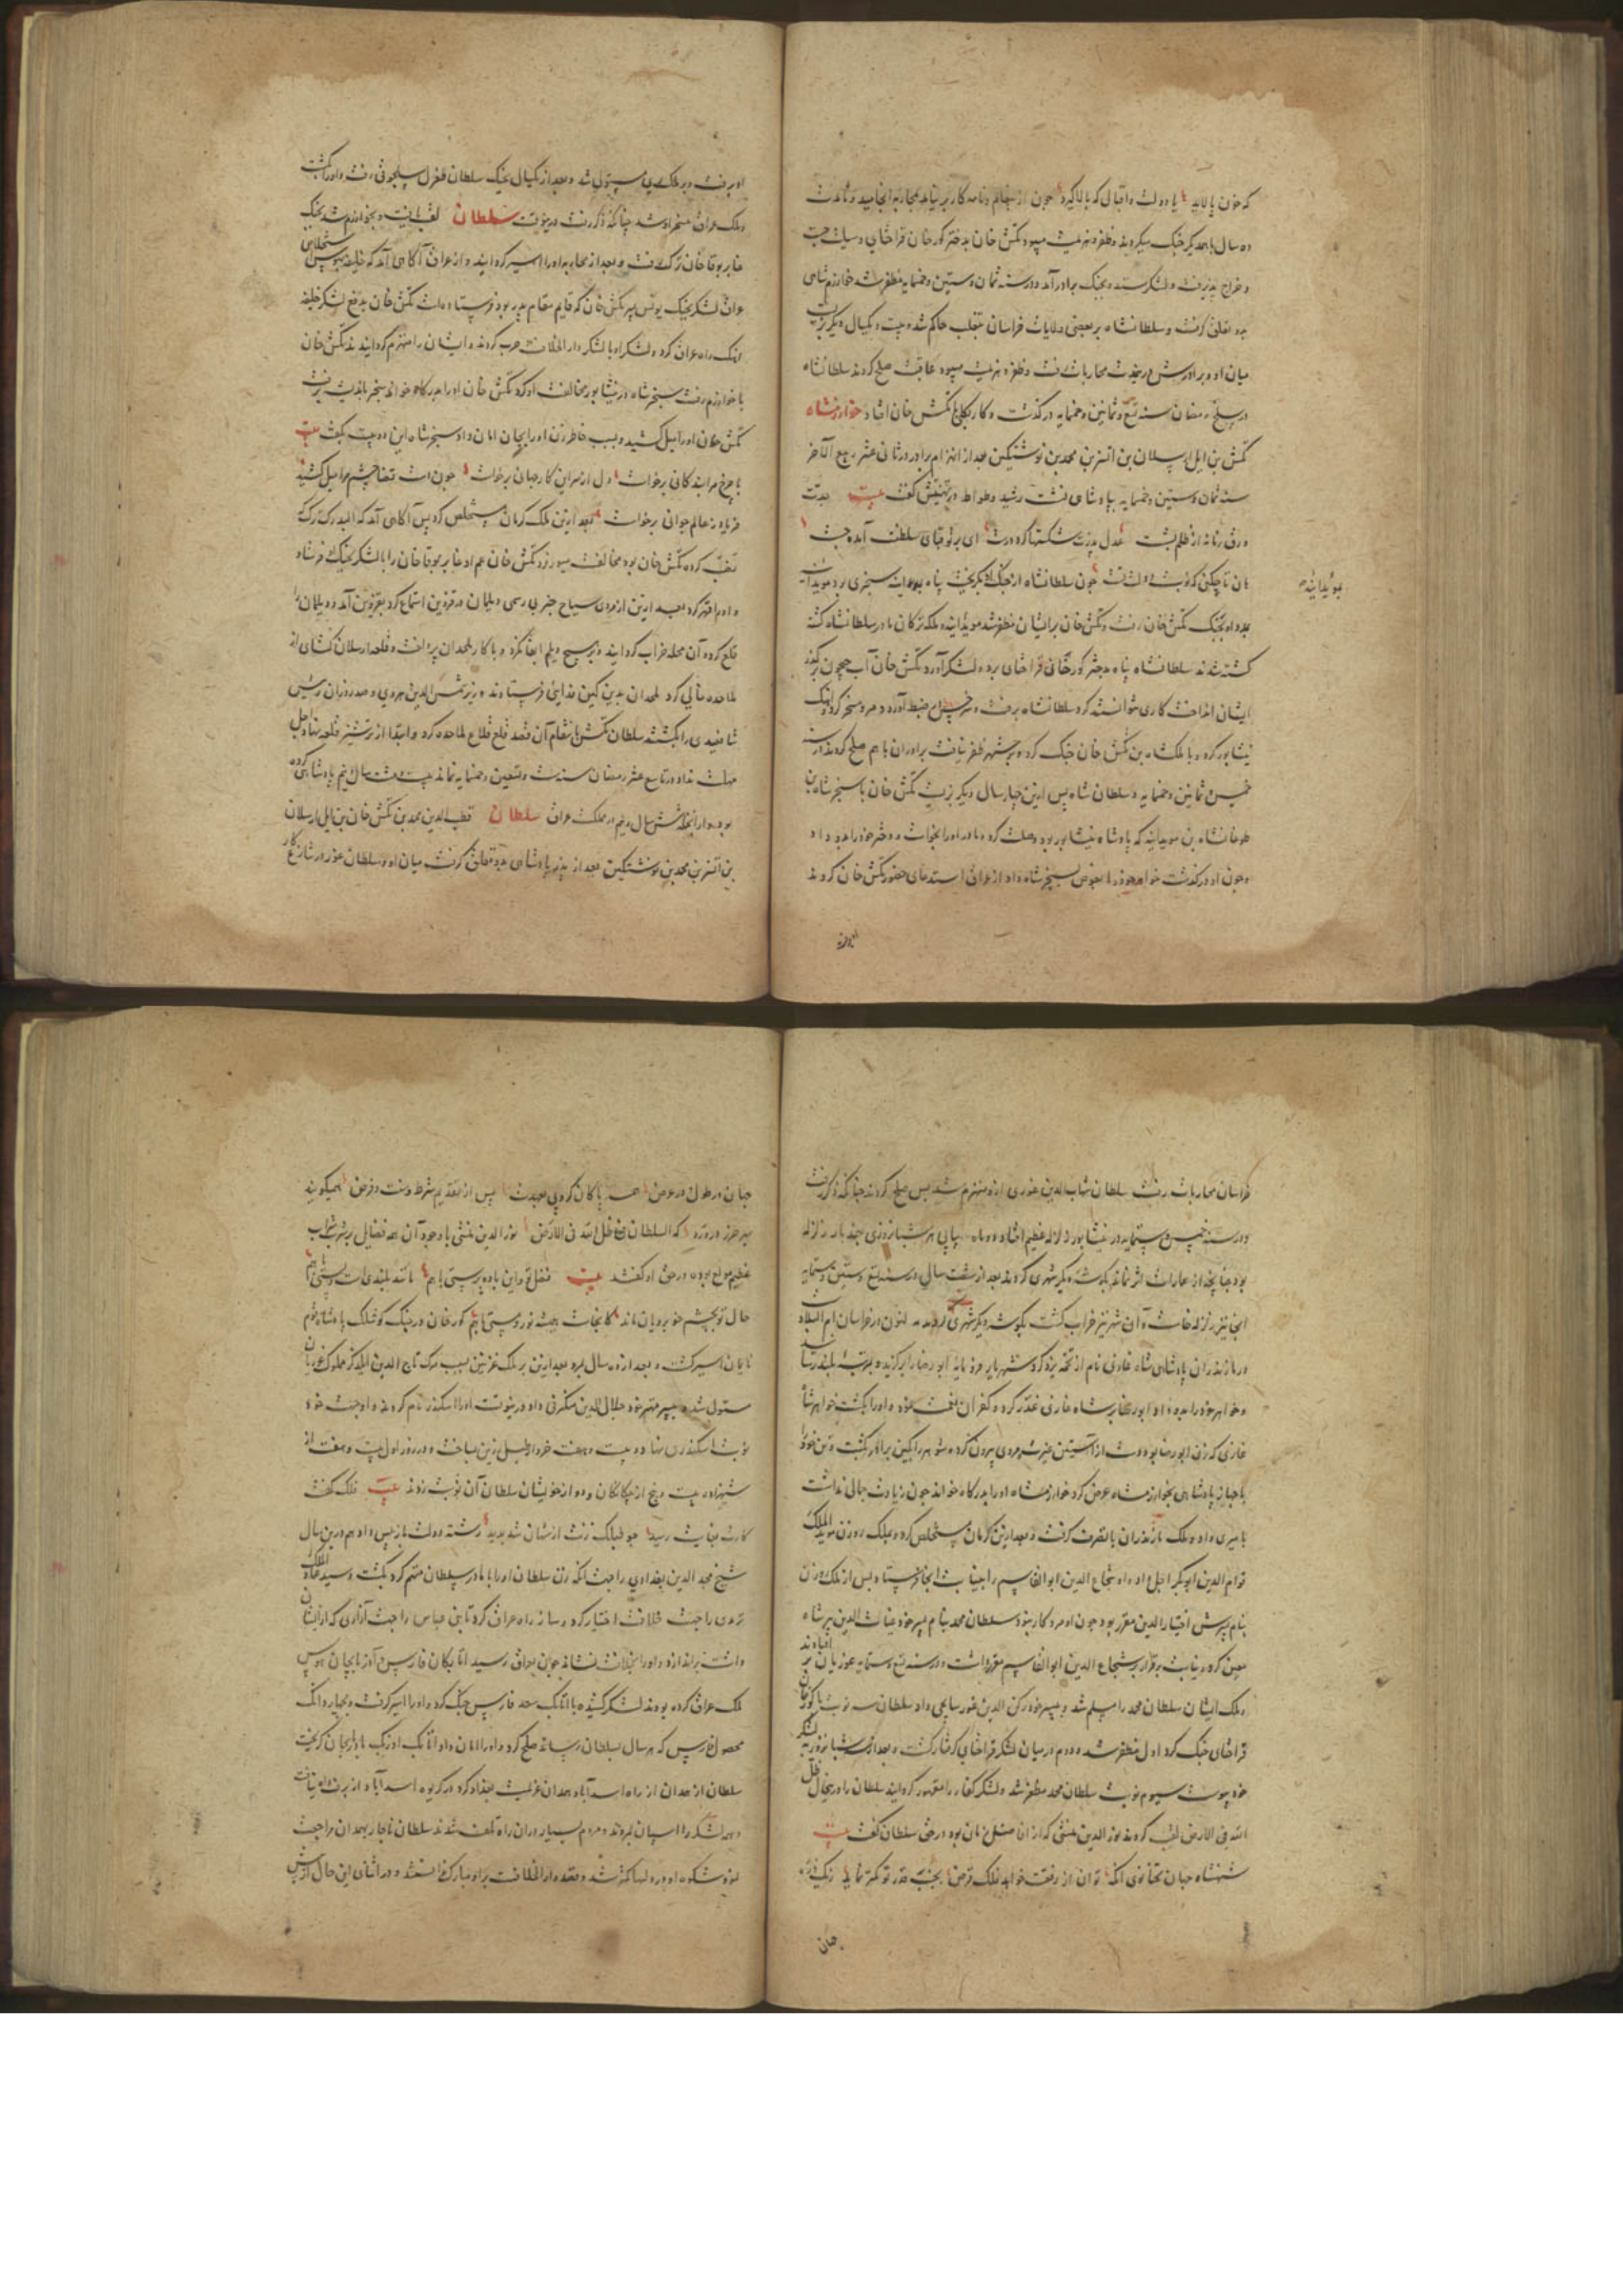 که خون پالاید یا دولت و اقبالی که بالا گیرد چون از پیغام و نامه کار بر نیامد بمحاربه انجامید و تا مدت
ده سال با همدیگر جنگ میکردند و ظفر و هزیمت میبود تکش خان بدختر کورخان قراختای وسیلت جست
و خراج پذیرفت و لشکر ستد و بجنگ برادر آمد و در سنه ثمان و ستین و خمسمایه مظفر شد خوارزمشاهی
بدو تعلق گرفت و سلطانشاه بر بعضی ولایات خراسان بتغلب حاکم شد و بیست و یکسال دیگر بزیست
میان او و برادرش درین مدت محاربات رفت و ظفر و هزیمت میبود عاقبت صلح کردند سلطانشاه
در سلخ رمضان سنه تسع و ثمانین و خمسمایه درگذشت و کار بکلی با تکش خان افتاد خوارزمشاه
تکش بن ایل ارسلان بن اتسز بن محمد بن نوشتکین بعد از انهزام برادر در ثانی عشر ربیع الآخر
سنه ثمان و ستین و خمسمایه بپادشاهی نشست رشید وطواط در تهنیتش گفت بیت جدت
ورق زمانه از ظلم بشست عدل پدرت شکستها کرد درست ای بر تو قبای سلطنت آمده چست
هان تا چکنی که نوبت دولت تست چون سلطانشاه از جنگ بگریخت پناه بموید سنجری برد موید
مویدایبه
بمدد او بجنگ تکش خان رفت و تکش خان بر ایشان مظفر شد مویدایبه و ملکه ترکان مادر سلطانشاه کشته
کشته شدند سلطانشاه پناه بدختر کورخان قراختای برد و لشکر آورد تکش خان آب جیحون بر گذر
ایشان انداخت کاری نتوانستند کرد سلطانشاه برفت و سرخس در ضبط آورد و مرو مسخر کرد و آهنگ
نیشابور کرد و با ملکشاه بن تکش خان جنگ کرد و بر شهر ظفر نیافت برادران با هم صلح کردند در سنه
خمس و ثمانین و خمسمایه و سلطان شاه پس ازین چهار سال دیگر بزیست تکش خان با سنجر شاه بن
طوغانشاه بن مویدایبه که پادشاه نیشابور بود وصلت کرد و مادر او را بخواست و دختر خود را بدو داد
و چون او درگذشت خواهر خود را بعوض بسنجر شاه داد از عراق استدعای حضور تکش خان کردند
او برفت و بر ملک ری مستولی شد و بعد از یکسال بجنگ سلطان طغرل سلجوقی رفت و او را بکشت
و ملک عراق مسخر او شد چنانکه ذکر رفت و درینوقت سلطان لقب یافت و بخوارزم شد بجنگ
غایر بوقا خان ترک رفت و بعد از محاربه او را اسیر گردانید و از عراق آگاهی آمد که خلیفه بهوس استخلاص
عراق لشکر بجنگ یونس پسر تکش خان که قایم مقام پدر بود فرستاده است تکش خان بدفع لشکر خلیفه
آهنگ راه عراق کرد و لشکر او با لشکر دار الخلافت حرب کردند و ایشان را منهزم گردانیدند تکش خان
با خوارزم رفت سنجر شاه در نیشابور مخالفت او کرد تکش خان او را بدرگاه خواند سنجر باندیشه برفت
تکش خان او را میل کشید و بسبب خاطر زن او را بجان امان داد سنجر شاه این دو بیت بگفت بیت
تا چرخ مرا بد کانی برخواست دل از سر این کار جهانی برخواست چون دست قضا چشم مرا میل کشید
فریاد ز عالم جوانی برخواست بعد ازین ملک کرمان مستخلص کرد پس آگاهی آمد که البدرک ترک
تعقب کرده تکش خان بود مخالفت میورزد تکش خان عم او غایر بوقا خان را با لشکر بجنگ فرستاد
و او را قهر کرد بعد ازین از مردی سیاح خبر بی رسمی دیلمان در قزوین استماع کرد بقزوین آمد و دیلمان را
قلع کرد و آن محله خراب گردانید و بر هیچ دیلم ابقا نکرد و با کار ملحدان پرداخت و قلعه ارسلان گشای از
ملاحده خالی کرد ملحدان بدین کین فدایی فرستادند وزیر شمس الدین هروی و صدر وزان رئیس
شافعیه ری را بکشتند سلطان تکش بانتقام آن قصد قلع قلاع ملاحده کرد و ابتدا از ترشیز
مهلت نداد و در تاسع عشر رمضان سنه ست و تسعین و خمسمایه نماند بیست و هشت سال و نیم پادشاهی کرده
بود و از آنجمله شش سال و نیم در مملکت عراق سلطان قطب الدین محمد بن تکش خان بن ایل ارسلان
بن اتسز بن محمد بن نوشتکین بعد از پدر پادشاهی بدو تعلق گرفت میان او و سلطان غور در تنازع کار
خراسان محاربات رفت سلطان شهاب الدین غوری ازو منهزم شد پس صلح کردند چنانکه ذکر رفت
و در سنه خمس و ستمایه در نیشابور زلزله عظیم افتاد و دو ماه پیاپی هر شبانروزی چند بار زلزله
بود چنانچه از عمارات اثر نماند بگوشه دیگر شهری کردند بعد از شصت سالی در سنه تسع و ستین و ستمایه
آنجا نیز زلزله خاست و آن شهر نیز خراب گشت بگوشه دیگر شهری کردند که اکنون در خراسان ام البلاد
در مازندران پادشاهی شاه غازی نام از تخمه یزدگرد شهریار فرومایه ابو رضا را برگزید و بمرتبه بلند رسانید
و خواهر خود را بدو داد ابو رضا بر شاه غازی غدر کرد و کفران نعمت نمود و او را بکشت خواهر شاه
غازی که زن ابو رضا بود دست از آستین غیرت بمردی بیرون کرد و شوهر را بکین برادر بکشت و تن خود را
با جهاز پادشاهی بخوارزمشاه عرض کرد خوارزمشاه او را بدرگاه خواند چون زیادت جمالی نداشت
بامیری داد و ملک مازندران با تصرف گرفت و بعد ازین کرمان مستخلص کرد و ملک زوزن موید الملک
قوام الدین ابوبکر
بنام پسرش اختیار الدین مقرر بود چون او مرد و کار بنود سلطان محمد بنام پسر خود غیاث الدین پیر شاه
معین کرد و نیابت برقرار بر شجاع الدین ابو القاسم مقرر داشت و در سنه تسع و ستمایه غوریان بر افتادند
و ملک ایشان سلطان محمد را مسلم شد و بپسر خود رکن الدین غور سایجی داد سلطان سه نوبت با کورخان
قراختای جنگ کرد اول مظفر شد و دوم در میان لشکر قراختای گرفتار گشت و بعد از سه شبانروز بلشکر
خود پیوست سیوم نوبت سلطان محمد مظفر شد و لشکر کفار را مقهور گردانید سلطان را درینحال ظل
الله فی الارض لقب کردند نور الدین منشی که از افاضل زمان بود در حق سلطان گفت بیت
شهنشاه جهان
جهان
جهان در طول و در عرض همه پاکان کروبی بعبدت پس از تقدیم شرط سنت و فرض همیگویند
که السلطان ظل الله فی الارض نور الدین منشی با وجود آن همه فضایل بر شرب شراب
عظیم مولع بوده در حق او گفتند بیت فضل تو و این باده پرستی با هم مانند بلندی است پستی با هم
حال تو بچشم خوبرویان ماند کانجاست همیشه نور و مستی با هم کورخان در جنگ کوشلک پادشاه قوم
نایمان اسیر گشت و بعد از دو سال بمرد بعد ازین بر ملک غزنین بسبب مرگ تاج الدین ایلدگز مملوک غوریان
مستولی شد و بپسر مهتر خود جلال الدین منکبرنی داد و درینوقت او را اسکندر نام کردند و او جهت خود
نوبت اسکندری نهاد و بیست و هفت خروار طبل زرین ساخت و در روز اول بیست و هفت از
شهزادگان بیست و پنج از بیگانگان و دو از خویشان سلطان آن نوبت زدند بیت فلک گفت
کارت بغایت رسید رشته دولت باز پس داد هم درین سال
شیخ مجد الدین بغدادی را جهت آنکه زن سلطان او را با مادر سلطان متهم کرد بکشت و سید علاء الملک
ترمدی را جهت خلافت اختیار کرد و ساز راه عراق کرد تا بنی عباس را جهت آزاری که از ایشان
داشت براندازد و او را بخلافت نشاند چون بعراق رسید اتابکان فارس و آذربایجان بهوس
ملک عراق کرده بودند لشکر کشیده با اتابک سعد فارس جنگ کرد و او را اسیر گرفت و بچهار دانگ
محصول فارس که هر سال بسلطان رساند صلح کرد و او را امان داد و اتابک اوزبک باذربایجان گریخت
سلطان از همدان از راه اسد آباد همدان عزیمت بغداد کرد در گریوه اسد آباد از برف
و همه لشکر را اسپان بمردند و مردم بسیار در آن راه تلف شدند سلطان ناچار بهمدان مراجعت
نمود شکوه او در دلها کمتر شد و قصد دار الخلافت بر او مبارک نیامد و در اثنای این حال